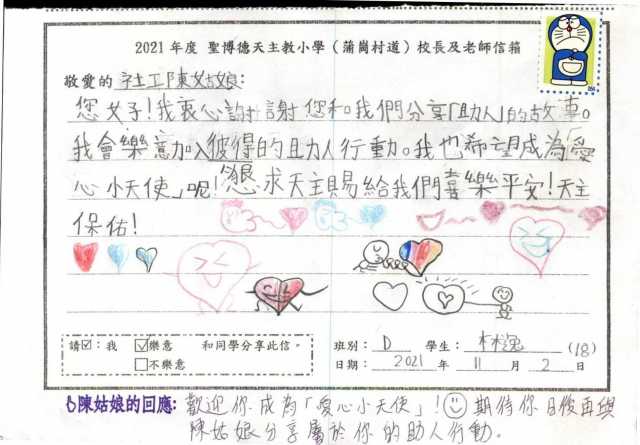 2021 年度 聖博德天主教小學（蒲崗村道）校長及老師信箱
敬愛的 社工陳姑娘：
您好！我衷心謝謝您和我們分享「助人」的故事。
我會樂意加入彼得的助人行動。我也希望成為「愛
心小天使」呢！懇求天主賜給我們喜樂平安！天主
保佑！
請☑：我 ☑樂意 和同學分享此信。
□不樂意
班別： D 學生： 林 (18)
日期： 2021 年 11 月 2 日
陳姑娘的回應：歡迎你成為「愛心小天使」！期待你日後再與
陳姑娘分享屬於你的助人行動。